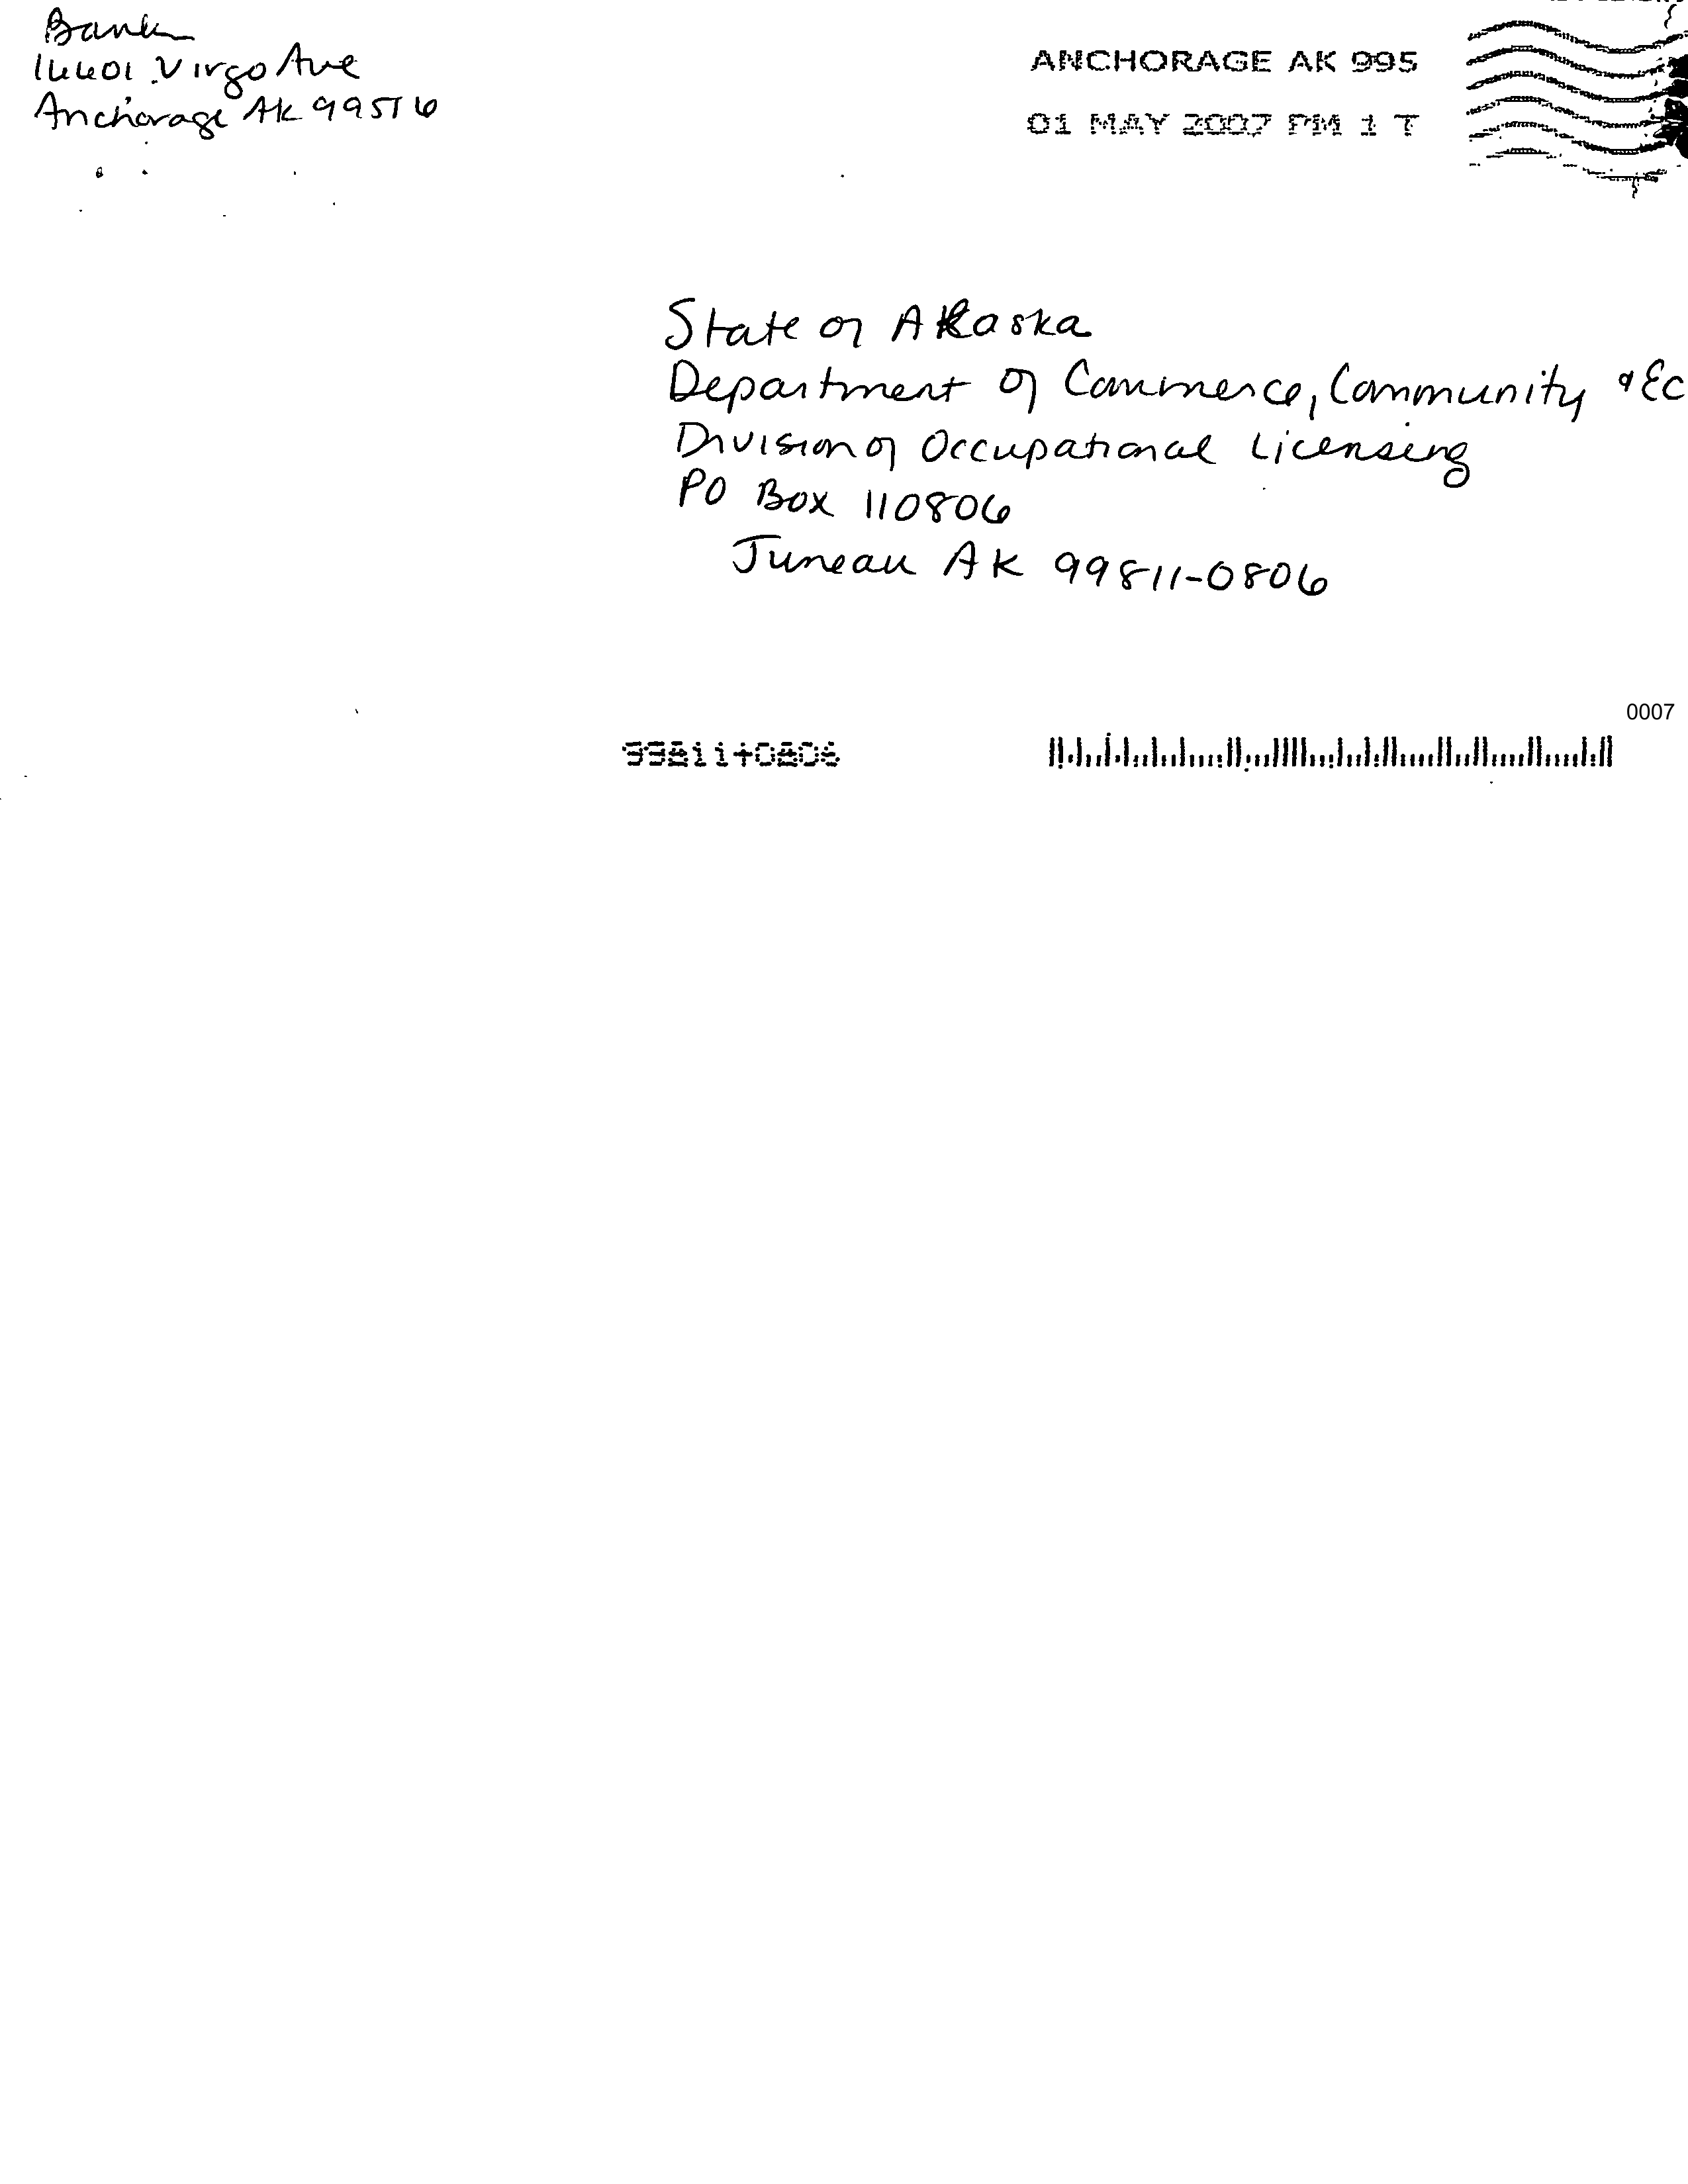 16601 Virgo Ave
Anchorage AK 99516
ANCHORAGE AK 995
01 MAY 2007 PM 1 T
State of Alaska
Department of Commerce, Community & Ec
Division of Occupational Licensing
PO Box 110806
Juneau AK 99811-0806
0007
99811+0806